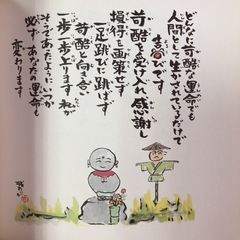 どんなに苛酷な運命でも
人間として生かされているだけで
喜びです
苛酷を受け入れ感謝し
一足跳びに跳ばず
苛酷と向き合い
一歩一歩上ります 私が
そうであったようにいつか
必ず あなたの運命も
変わります